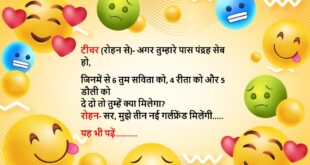 टीचर (रोहन से)- अगर तुम्हारे पास पंद्रह सेब
हो,
जिनमें से 6 तुम सविता को, 4 रीता को और 5
डौली को
दे दो तो तुम्हें क्या मिलेगा?
रोहन- सर, मुझे तीन नई गर्लफ्रेंड मिलेंगी.....
यह भी पढ़ें...........